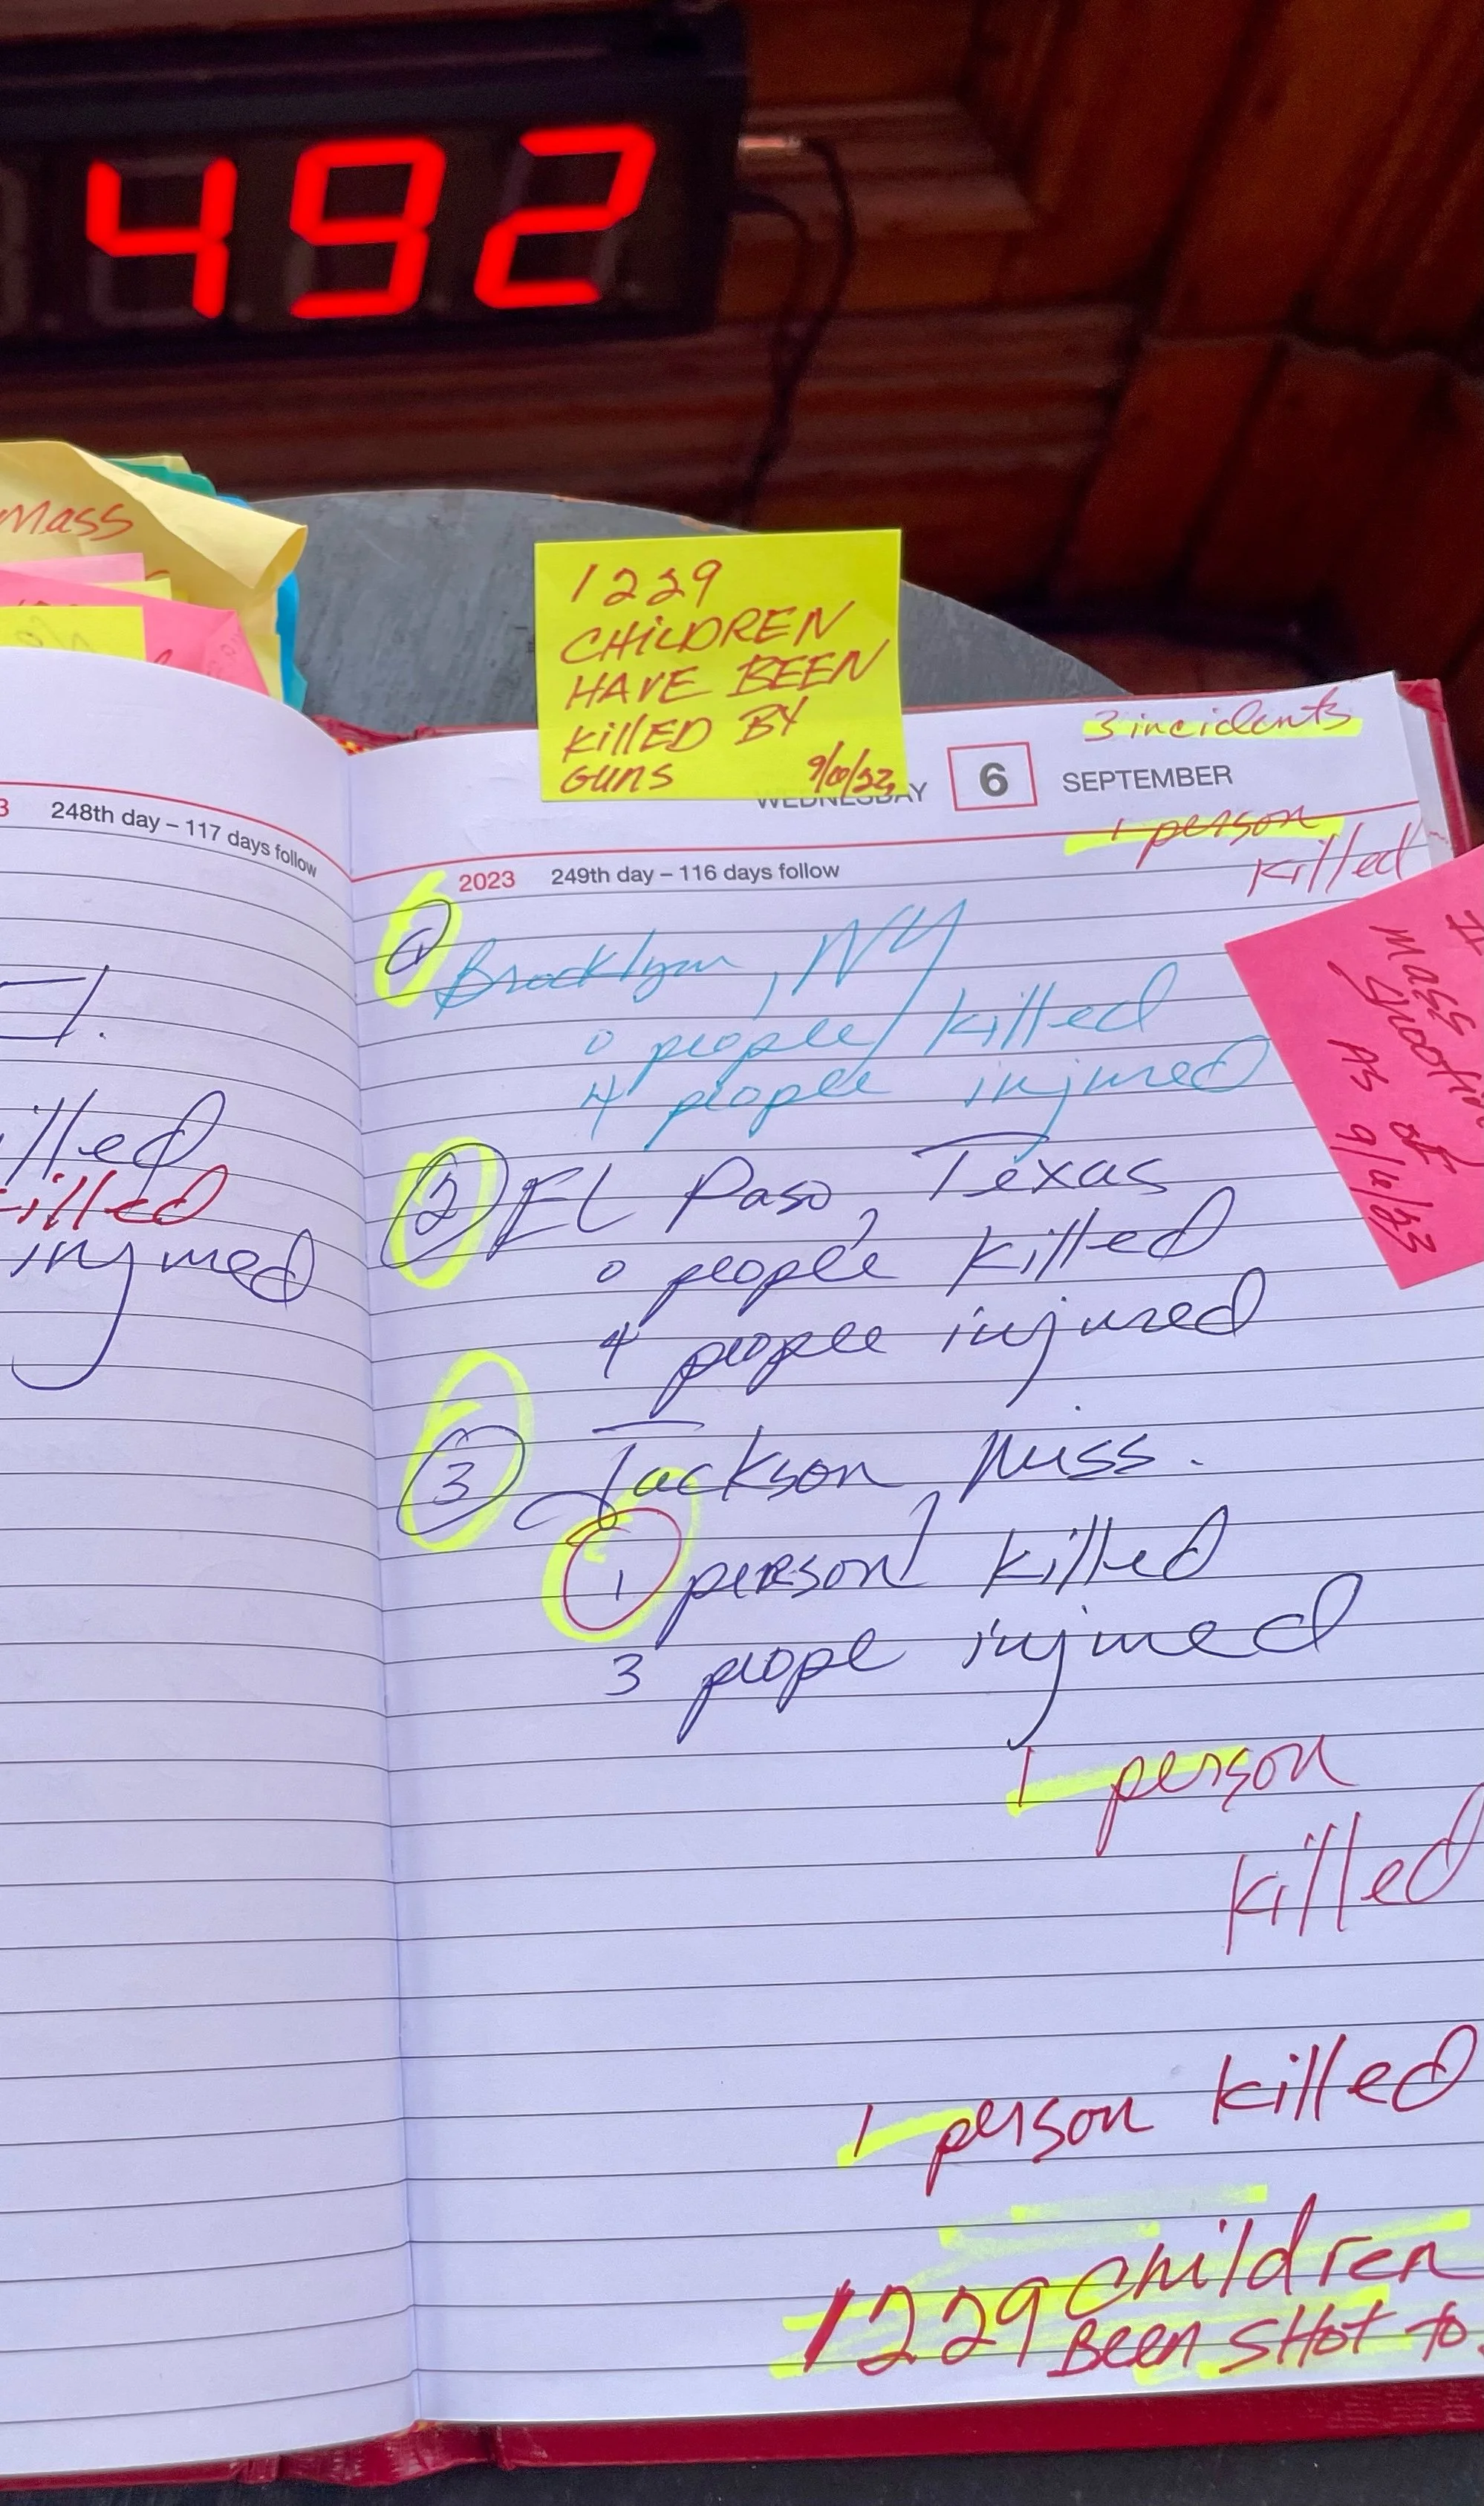 492
Mass
1229
CHILDREN
HAVE BEEN
KILLED BY
GUNS
3 incidents
WEDNESDAY 6 SEPTEMBER
1 person
killed
248th day – 117 days follow
2023 249th day – 116 days follow
1 Brooklyn, NY
0 people killed
4 people injured
2 El Paso, Texas
0 people killed
4 people injured
3 Jackson Miss.
1 person killed
3 peopl injured
1 person
killed
1 person killed
1229 children
Been SHot to
injured
MASS
AS of
9/6/23